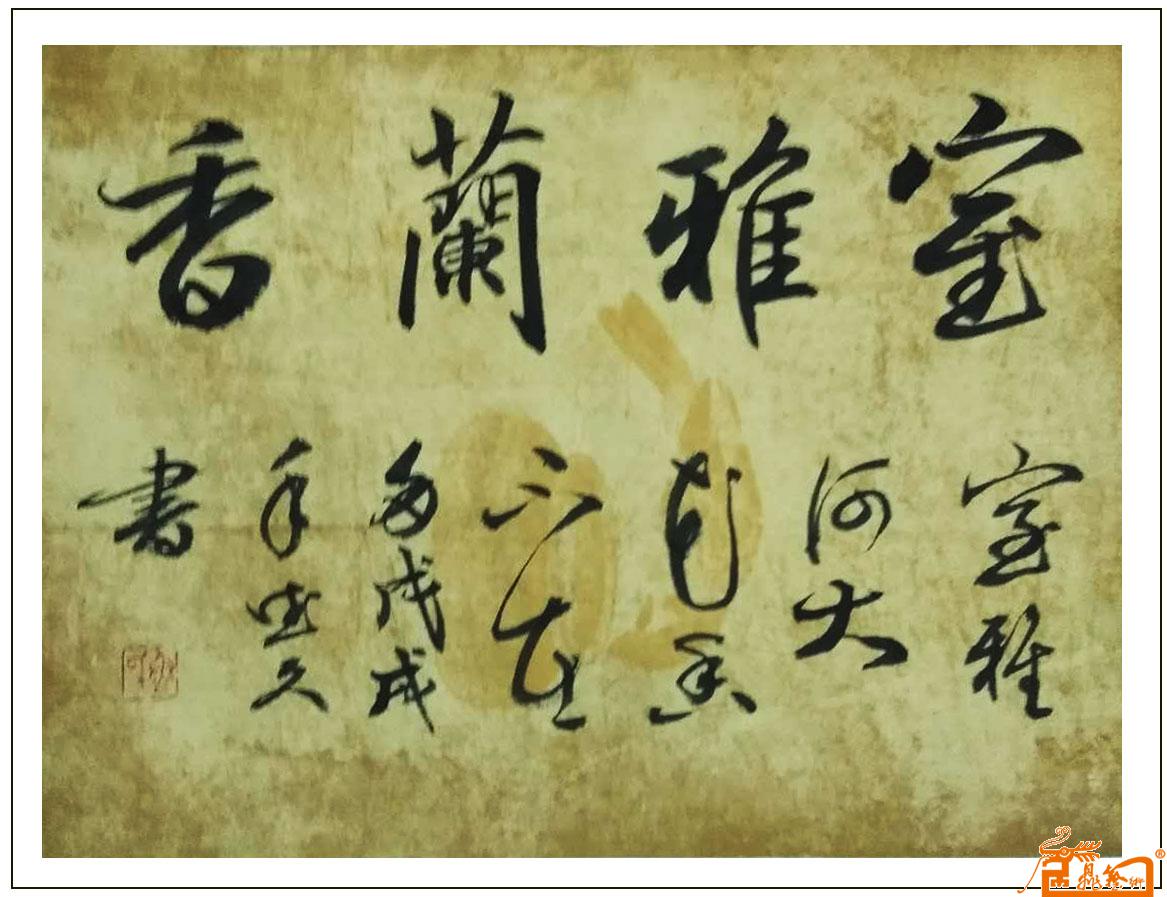 室雅蘭香
室雅
何大
花香
不在
多戊戌
年 久
書